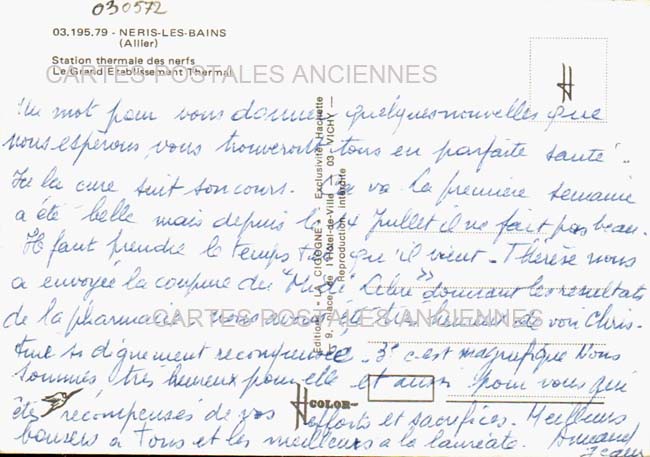 030572
03.195.79 - NERIS-LES-BAINS
(Allier)
Station thermale des nerfs
Le Grand Etablissement Thermal
CARTES POSTALES ANCIENNES
Un mot pour vous donner quelques nouvelles que
nous espérons, vous trouveront tous en parfaite santé.
Ici la cure suit son cours. va la première semaine
a été belle mais depuis le 4 Juillet il ne fait pas beau.
Il faut prendre le temps tel que il vient - Thérèse nous
a envoyée la coupure du "Midi Libre" donnant les résultats
de la pharmacie. nous avons été très heureux de voir Chris-
tine si dignement recompensée - 3e c'est magnifique Nous
sommes très heureux pour elle et aussi pour vous qui
êtes récompensés de vos efforts et sacrifices - Meilleurs
baisers à Tous et les meilleurs a la lauréate. Armand
CARTES POSTALES ANCIENNES
Editions "LA CIGOGNE" - Exclusivité Hachette
9, place de l'Hôtel-de-Ville - 03 VICHY -
Reproduction interdite
H COLOR